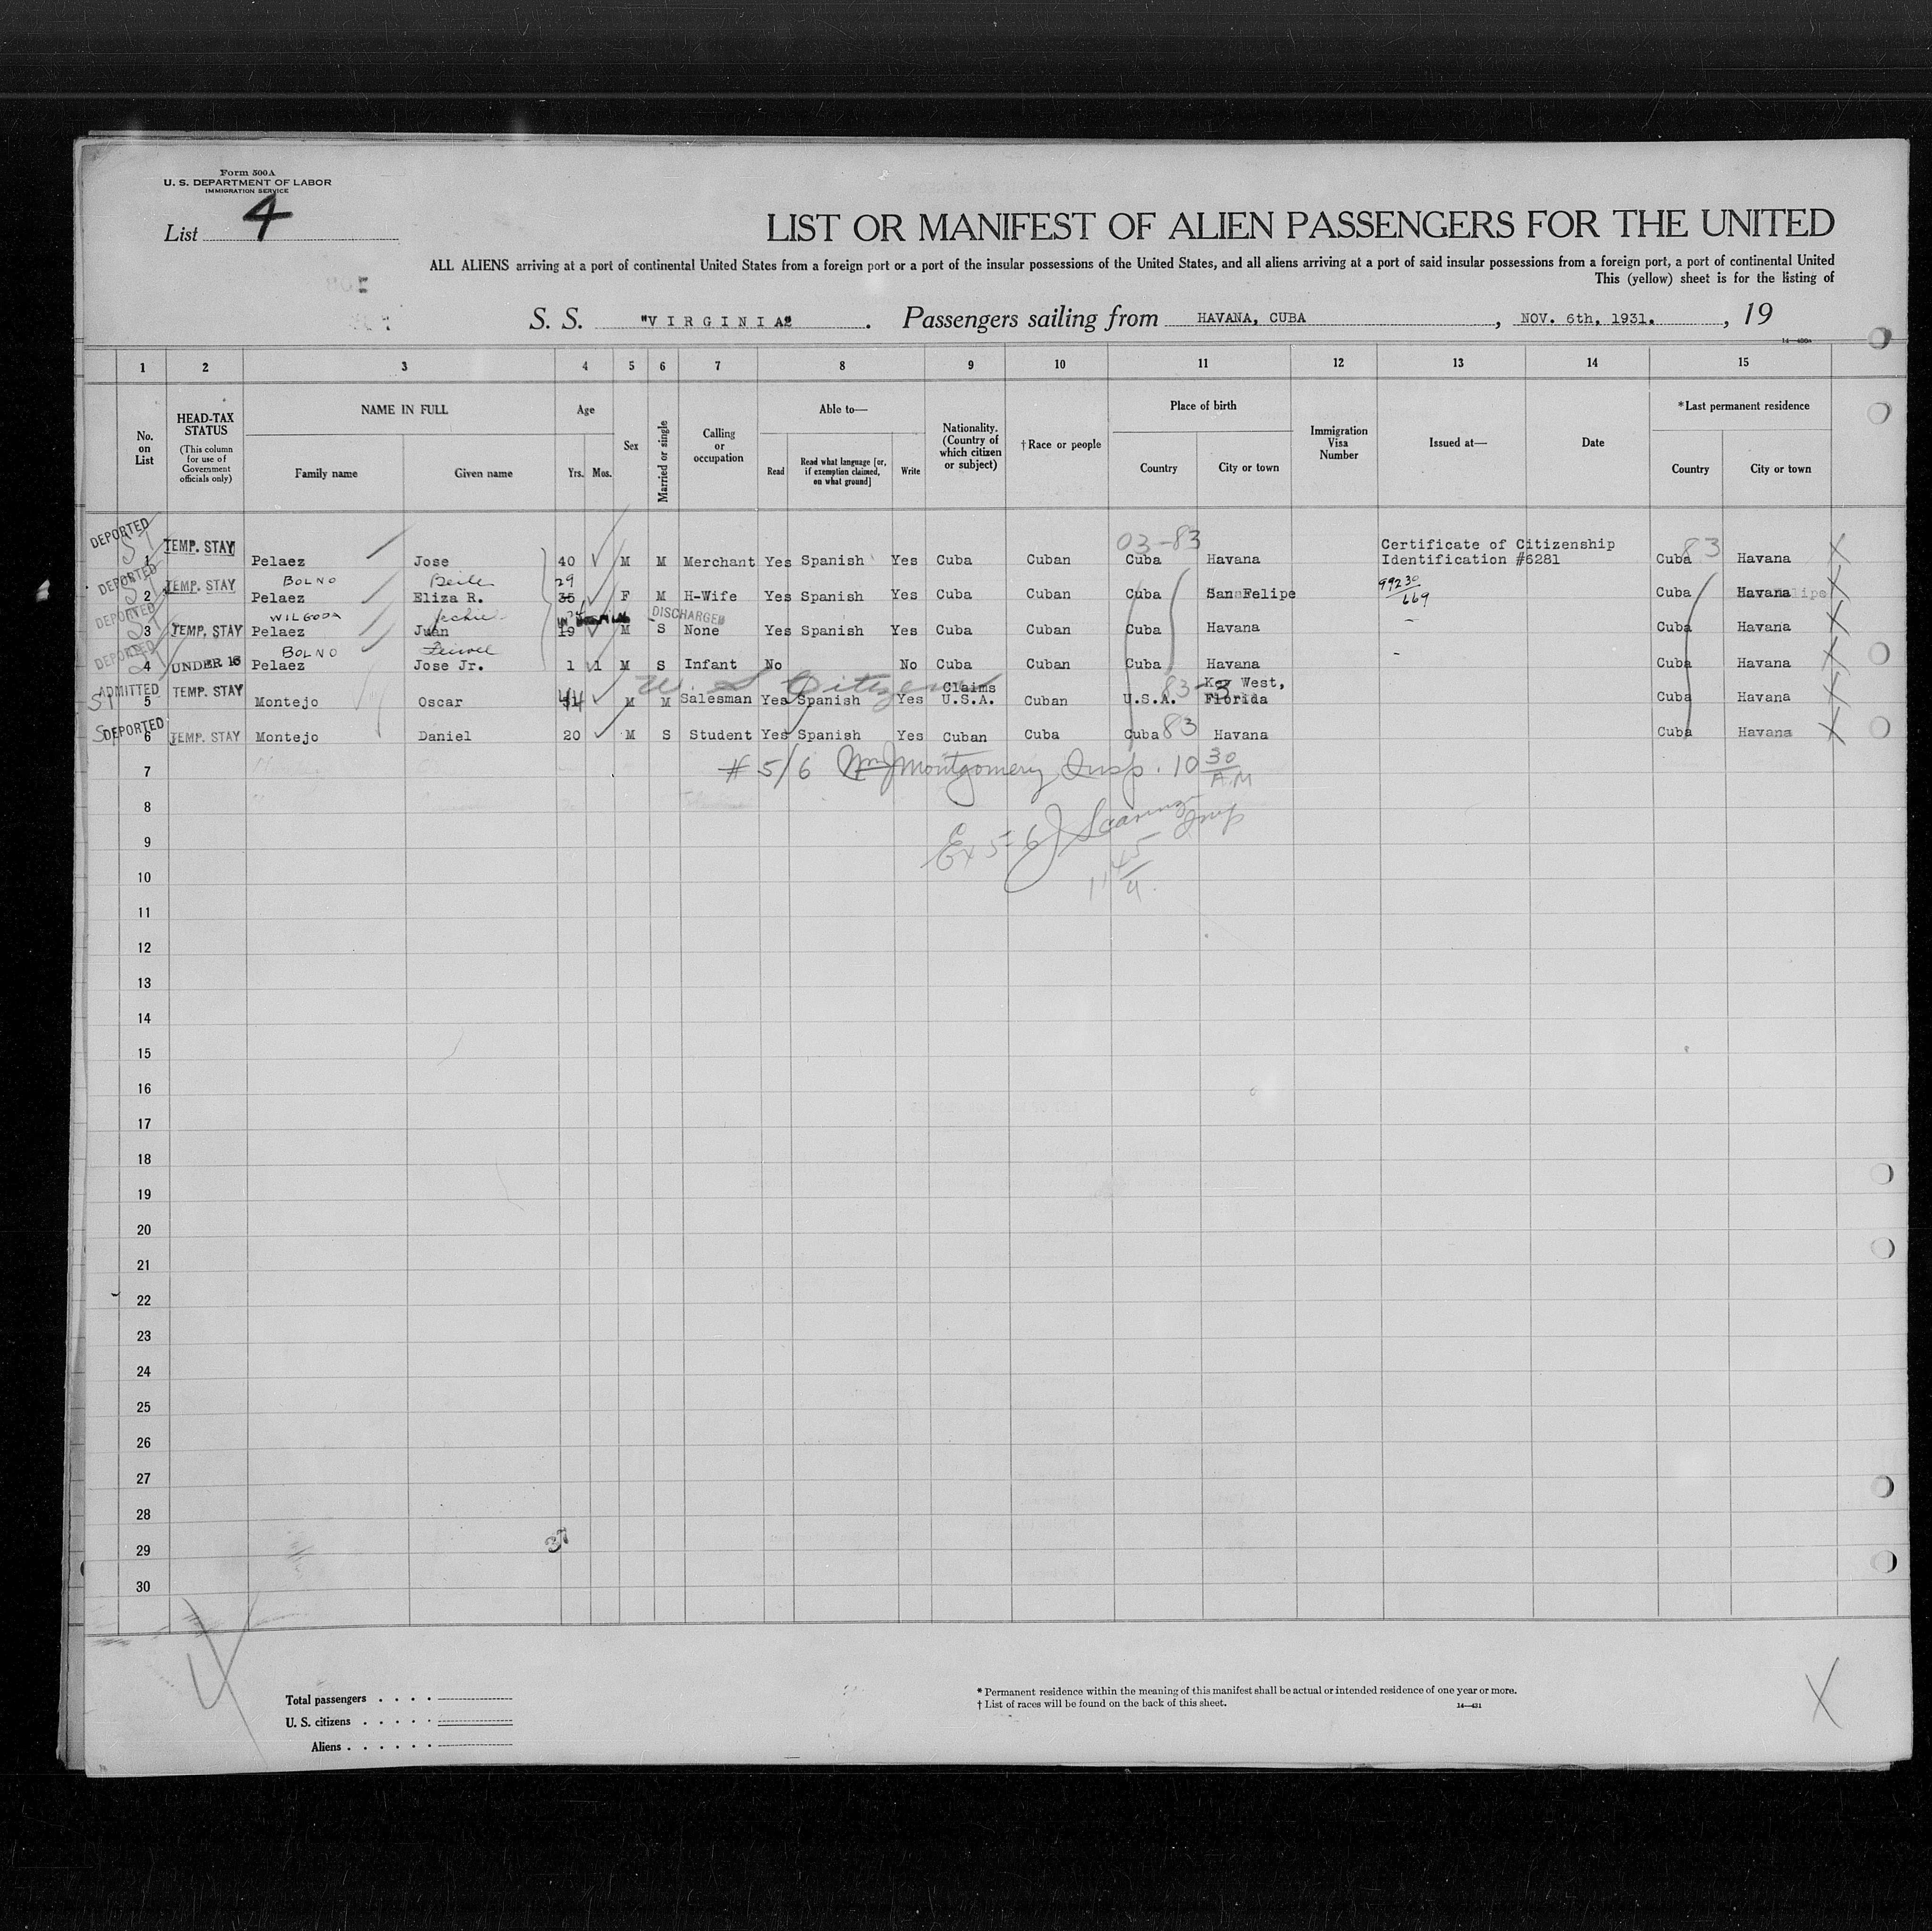 Form 500A
U. S. DEPARTMENT OF LABOR
IMMIGRATION SERVICE
List 4
LIST OR MANIFEST OF ALIEN PASSENGERS FOR THE UNITED
ALL ALIENS arriving at a port of continental United States from a foreign port or a port of the insular possessions of the United States, and all aliens arriving at a port of said insular possessions from a foreign port, a port of continental United
This (yellow) sheet is for the listing of
S. S. "VIRGINIA" . Passengers sailing from HAVANA, CUBA , NOV. 6th, 1931. , 19
1 2 3 4 5 6 7 8 9 10 11 12 13 14 15
No. on List
HEAD-TAX STATUS
(This column for use of Government officials only)
NAME IN FULL
Family name
Given name
Age
Yrs. Mos.
Sex
Married or single
Calling or occupation
Able to—
Read
Read what language [or, if exemption claimed, on what ground]
Write
Nationality. (Country of which citizen or subject)
† Race or people
Place of birth
Country
City or town
Immigration Visa Number
Issued at—
Date
*Last permanent residence
Country
City or town
DEPORTED
03-83
TEMP. STAY
Certificate of Citizenship
1 Pelaez Jose 40 M M Merchant Yes Spanish Yes Cuba Cuban Cuba Havana Identification #6281 Cuba 83 Havana X
DEPORTED TEMP. STAY BOLNO Beile 29
2 Pelaez Eliza R. 35 F M H-Wife Yes Spanish Yes Cuba Cuban Cuba San Felipe 992 30/669 Cuba Havana X
DEPORTED WILGODA DISCHARGED
3 TEMP. STAY Pelaez Juan 19 M S None Yes Spanish Yes Cuba Cuban Cuba Havana Cuba Havana X
DEPORTED BOLNO
4 UNDER 16 Pelaez Jose Jr. 1 1 M S Infant No No Cuba Cuban Cuba Havana Cuba Havana X
ADMITTED TEMP. STAY U. S. Citizen Claims 83-3 Key West,
5 Montejo Oscar 44 M M Salesman Yes Spanish Yes U.S.A. Cuban U.S.A. Florida Cuba Havana X
DEPORTED
6 TEMP. STAY Montejo Daniel 20 M S Student Yes Spanish Yes Cuban Cuba Cuba 83 Havana Cuba Havana X
7 # 5/6 Wm J Montgomery Insp. 10 30 A.M
8
9 Ex 5-6 J Insp
10 11 45
11
12
13
14
15
16
17
18
19
20
21
22
23
24
25
26
27
28
29
30
Total passengers . . . .
U. S. citizens . . . . .
Aliens . . . . . .
* Permanent residence within the meaning of this manifest shall be actual or intended residence of one year or more.
† List of races will be found on the back of this sheet.
14—431
X